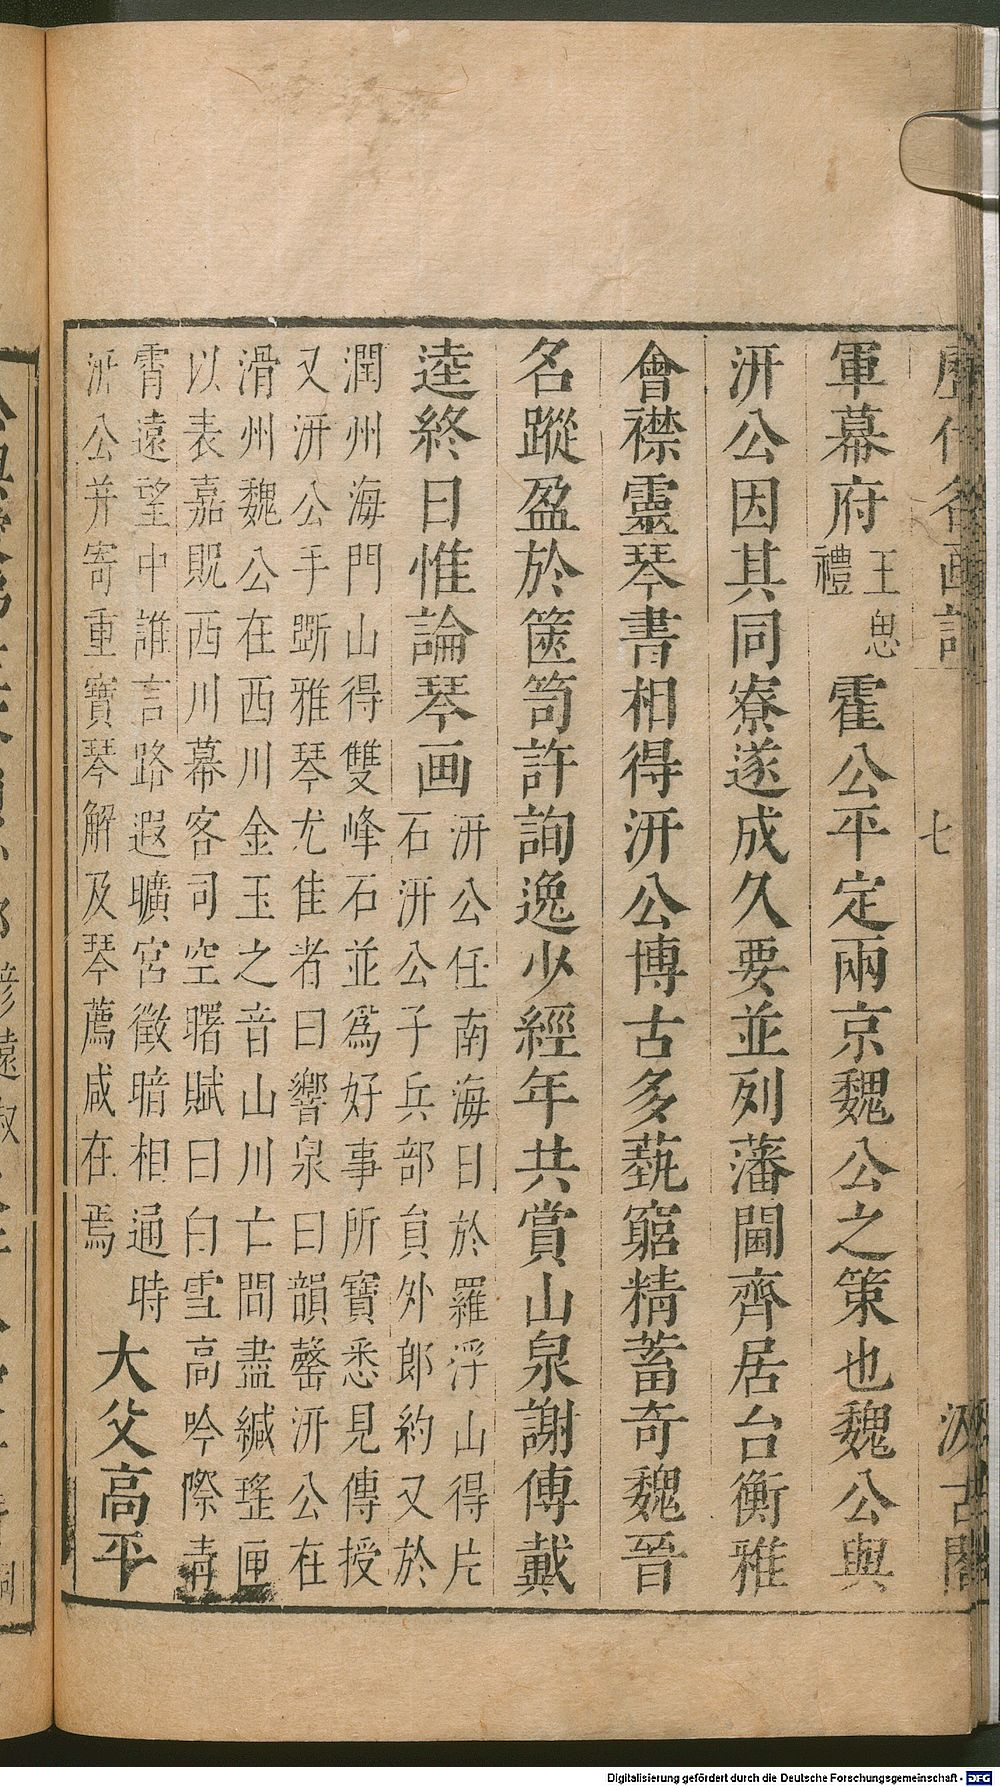 歷代名画記
七
汲古閣
軍幕府王思禮霍公平定兩京魏公之策也魏公與
汧公因其同寮遂成久要並列藩閫齊居台衡雅
會襟靈琴書相得汧公博古多藝窮精蓄奇魏晉
名蹤盈於篋笥許詢逸少經年共賞山泉謝傅戴
逵終日惟論琴画
汧公任南海日於羅浮山得片
石汧公子兵部貟外郎約又於
潤州海門山得雙峰石並爲好事所寶悉見傳授
又汧公手斲雅琴尤佳者曰響泉曰韻罄汧公在
滑州魏公在西川金玉之音山川亡間盡緘瑤匣
以表嘉貺西川幕客司空曙賦曰白雪高吟際青
霄遠望中誰言路遐曠宮徵暗相通時
汧公并寄重寶琴解及琴薦咸在焉
大父高平
Digitalisierung gefördert durch die Deutsche Forschungsgemeinschaft - DFG